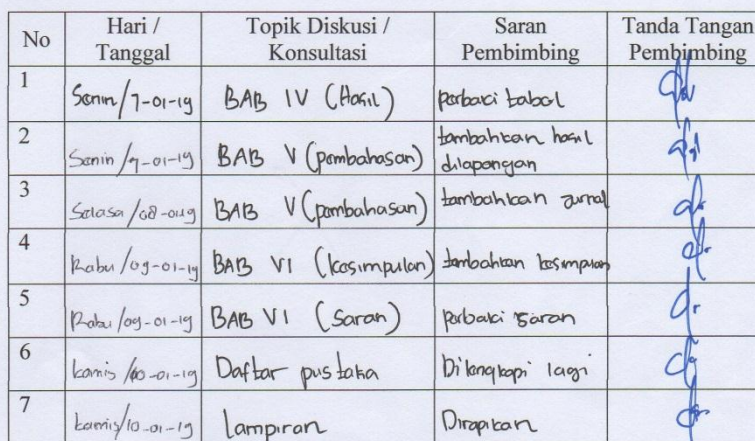 No Hari / Tanggal Topik Diskusi / Konsultasi Saran Pembimbing Tanda Tangan Pembimbing
1 Senin/7-01-19 BAB IV (Hasil) perbaiki tabel
2 Senin/7-01-19 BAB V (pembahasan) tambahkan hasil dilapangan
3 Selasa/08-01-19 BAB V (pembahasan) tambahkan jurnal
4 Rabu/09-01-19 BAB VI (kesimpulan) tambahkan kesimpulan
5 Rabu/09-01-19 BAB VI (Saran) perbaiki saran
6 kamis/10-01-19 Daftar pustaka Dilengkapi lagi
7 kamis/10-01-19 Lampiran Dirapikan